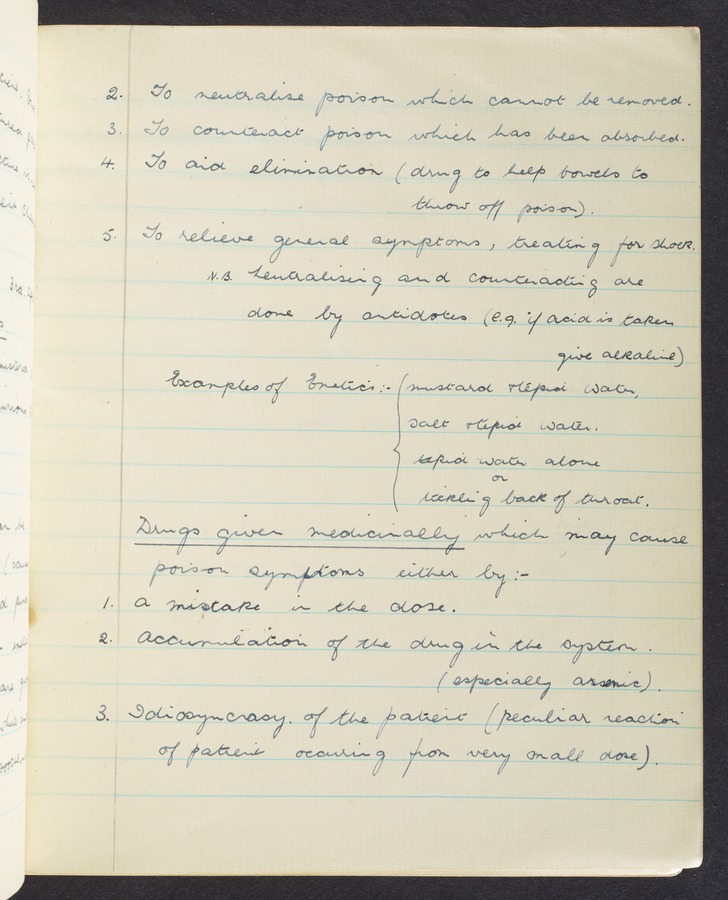 2. To neutralise poison which cannot be removed.
3. To counteract poison which has been absorbed.
4. To aid elimination (drug to help bowels to
throw off poison).
5. To relieve general symptoms, treating for shock.
N.B. Neutralising and counteracting are
done by antidotes (e.g. if acid is taken
give alkaline)
Examples of Emetics:- (mustard + tepid water,
salt + tepid water.
tepid water alone
or
tickling back of throat.
Drugs given medicinally which may cause
poison symptoms either by:-
1. A mistake in the dose.
2. Accumulation of the drug in the system.
(especially arsenic).
3. Idiosyncrasy. of the patient (peculiar reaction
of patient occuring from very small dose).